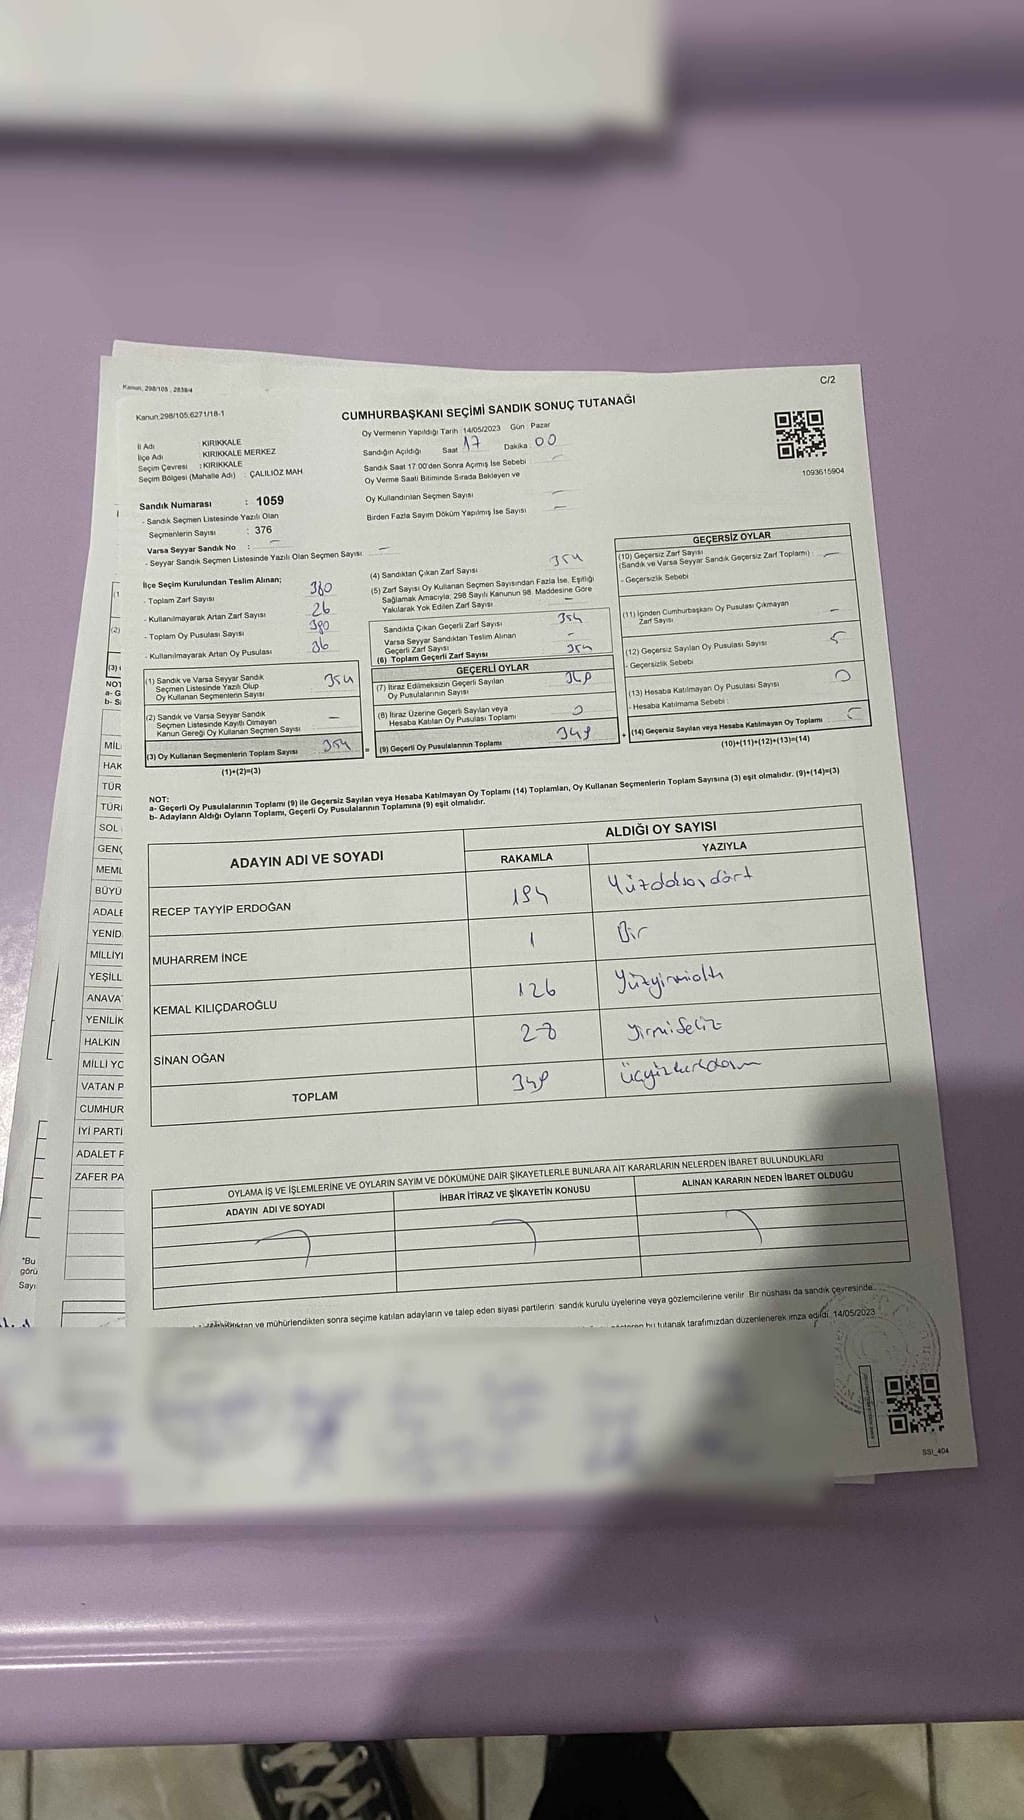 Kanun; 298/105 , 2839/4
C/2
Kanun;298/105;6271/18-1
CUMHURBAŞKANI SEÇİMİ SANDIK SONUÇ TUTANAĞI
1093615904
İl Adı : KIRIKKALE
İlçe Adı : KIRIKKALE MERKEZ
Seçim Çevresi : KIRIKKALE
Seçim Bölgesi (Mahalle Adı) : ÇALILIÖZ MAH.
Oy Vermenin Yapıldığı Tarih :14/05/2023 Gün : Pazar
Sandığın Açıldığı Saat : 17 Dakika : 00
Sandık Saat 17:00'den Sonra Açımış İse Sebebi : –
Oy Verme Saati Bitiminde Sırada Bekleyen ve
Oy Kullandırılan Seçmen Sayısı –
Birden Fazla Sayım Döküm Yapılmış İse Sayısı –
Sandık Numarası : 1059
- Sandık Seçmen Listesinde Yazılı Olan
Seçmenlerin Sayısı : 376
Varsa Seyyar Sandık No : –
- Seyyar Sandık Seçmen Listesinde Yazılı Olan Seçmen Sayısı: –
İlçe Seçim Kurulundan Teslim Alınan;
- Toplam Zarf Sayısı 380
- Kullanılmayarak Artan Zarf Sayısı 26
- Toplam Oy Pusulası Sayısı 380
- Kullanılmayarak Artan Oy Pusulası
(1) Sandık ve Varsa Seyyar Sandık
Seçmen Listesinde Yazılı Olup
Oy Kullanan Seçmenlerin Sayısı 354
(2) Sandık ve Varsa Seyyar Sandık
Seçmen Listesinde Kayıtlı Olmayan
Kanun Gereği Oy Kullanan Seçmen Sayısı –
(3) Oy Kullanan Seçmenlerin Toplam Sayısı 354 =
(1)+(2)=(3)
(4) Sandıktan Çıkan Zarf Sayısı 354
(5) Zarf Sayısı Oy Kullanan Seçmen Sayısından Fazla İse, Eşitliği
Sağlamak Amacıyla; 298 Sayılı Kanunun 98. Maddesine Göre
Yakılarak Yok Edilen Zarf Sayısı –
Sandıkta Çıkan Geçerli Zarf Sayısı 354
Varsa Seyyar Sandıktan Teslim Alınan
Geçerli Zarf Sayısı –
(6) Toplam Geçerli Zarf Sayısı 354
GEÇERLİ OYLAR
(7) İtiraz Edilmeksizin Geçerli Sayılan
Oy Pusulalarının Sayısı 349
(8) İtiraz Üzerine Geçerli Sayılan veya
Hesaba Katılan Oy Pusulası Toplamı 0
(9) Geçerli Oy Pusulalarının Toplamı 349 +
GEÇERSİZ OYLAR
(10) Geçersiz Zarf Sayısı
(Sandık ve Varsa Seyyar Sandık Geçersiz Zarf Toplamı) : –
- Geçersizlik Sebebi
(11) İçinden Cumhurbaşkanı Oy Pusulası Çıkmayan
Zarf Sayısı –
(12) Geçersiz Sayılan Oy Pusulası Sayısı 5
- Geçersizlik Sebebi
(13) Hesaba Katılmayan Oy Pusulası Sayısı 0
- Hesaba Katılmama Sebebi :
(14) Geçersiz Sayılan veya Hesaba Katılmayan Oy Toplamı 5
(10)+(11)+(12)+(13)=(14)
NOT:
a- Geçerli Oy Pusulalarının Toplamı (9) ile Geçersiz Sayılan veya Hesaba Katılmayan Oy Toplamı (14) Toplamları, Oy Kullanan Seçmenlerin Toplam Sayısına (3) eşit olmalıdır. (9)+(14)=(3)
b- Adayların Aldığı Oyların Toplamı, Geçerli Oy Pusulalarının Toplamına (9) eşit olmalıdır.
ADAYIN ADI VE SOYADI
ALDIĞI OY SAYISI
RAKAMLA YAZIYLA
RECEP TAYYİP ERDOĞAN 194 Yüzdoksandört
MUHARREM İNCE 1 Bir
KEMAL KILIÇDAROĞLU 126 Yüzyirmialtı
SİNAN OĞAN 28 Yirmisekiz
TOPLAM 349
OYLAMA İŞ VE İŞLEMLERİNE VE OYLARIN SAYIM VE DÖKÜMÜNE DAİR ŞİKAYETLERLE BUNLARA AİT KARARLARIN NELERDEN İBARET BULUNDUKLARI
ADAYIN ADI VE SOYADI
İHBAR İTİRAZ VE ŞİKAYETİN KONUSU
ALINAN KARARIN NEDEN İBARET OLDUĞU
ve mühürlendikten sonra seçime katılan adayların ve talep eden siyasi partilerin sandık kurulu üyelerine veya gözlemcilerine verilir. Bir nüshası da sandık çevresinde
bu tutanak tarafımızdan düzenlenerek imza edildi. 14/05/2023
SSI_404
(1
(2)
(3) (
NOT
a- G
b- Si
MİL
HAK
TÜR
TÜRİ
SOL
GENÇ
MEML
BÜYÜ
ADALE
YENİD
MİLLİYE
YEŞİLL
ANAVA
YENİLİK
HALKIN
MİLLİ YO
VATAN P
CUMHUR
İYİ PARTİ
ADALET P
ZAFER PA
*Bu
görü
Sayı